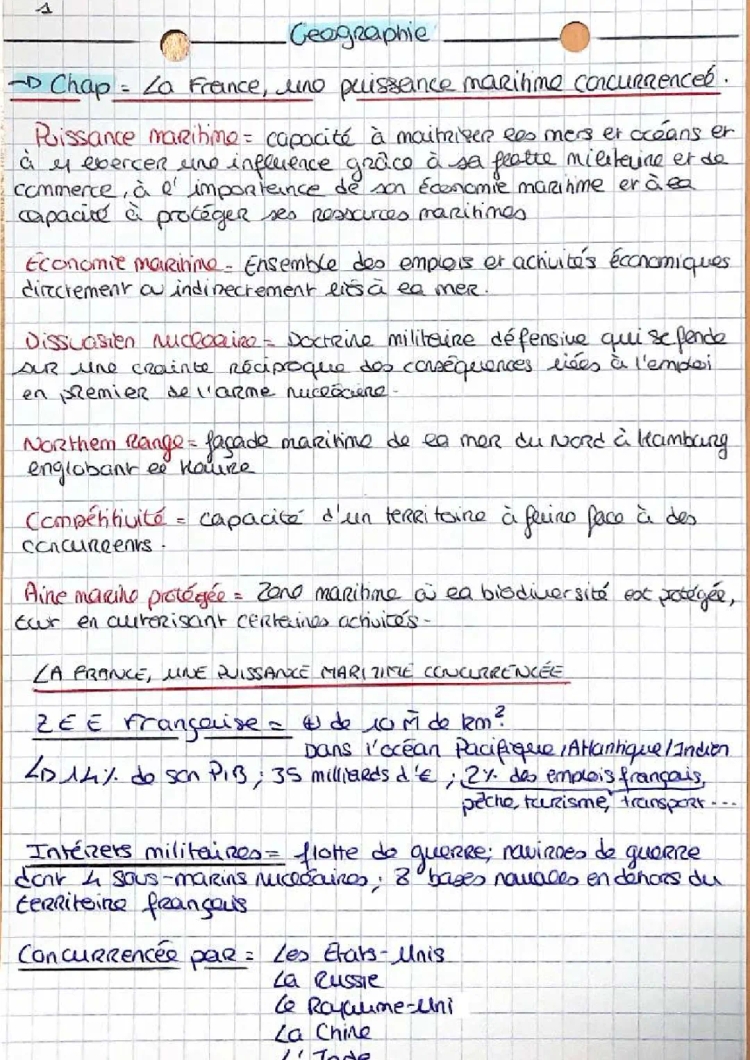 1
Geographie
→ Chap = La France, une puissance maritime concurrencée.
Puissance maritime = capacité à maitriser les mers et océans et
à y exercer une influence grâce à sa flotte militaire et de
commerce, à l'importance de son économie maritime et à la
capacité à protéger ses ressources maritimes
Économie maritime = Ensemble des emplois et activités économiques
directement ou indirectement liés à la mer.
Dissuasion nucléaire = Doctrine militaire défensive qui se fonde
sur une crainte réciproque des conséquences liées à l'emploi
en premier de l'arme nucléaire.
Northern Range = façade maritime de la mer du Nord à Hambourg
englobant le Havre
Compétitivité = capacité d'un territoire à faire face à des
concurrents.
Aire marine protégée = Zone maritime où la biodiversité est protégée,
tout en autorisant certaines activités.
LA FRANCE, UNE PUISSANCE MARITIME CONCURRENCÉE
ZEE Française = ⊕ de 10 M de km²
Dans l'océan Pacifique / Atlantique / Indien
↳ 14% de son PIB ; 35 milliards d'€ ; 2% des emplois français,
pêche, tourisme, transport ...
Intérêts militaires = flotte de guerre; navires de guerre
dont 4 sous-marins nucléaires; 8 bases navales en dehors du
territoire français
Concurrencée par = Les États-Unis
La Russie
Le Royaume-Uni
La Chine
L'Inde